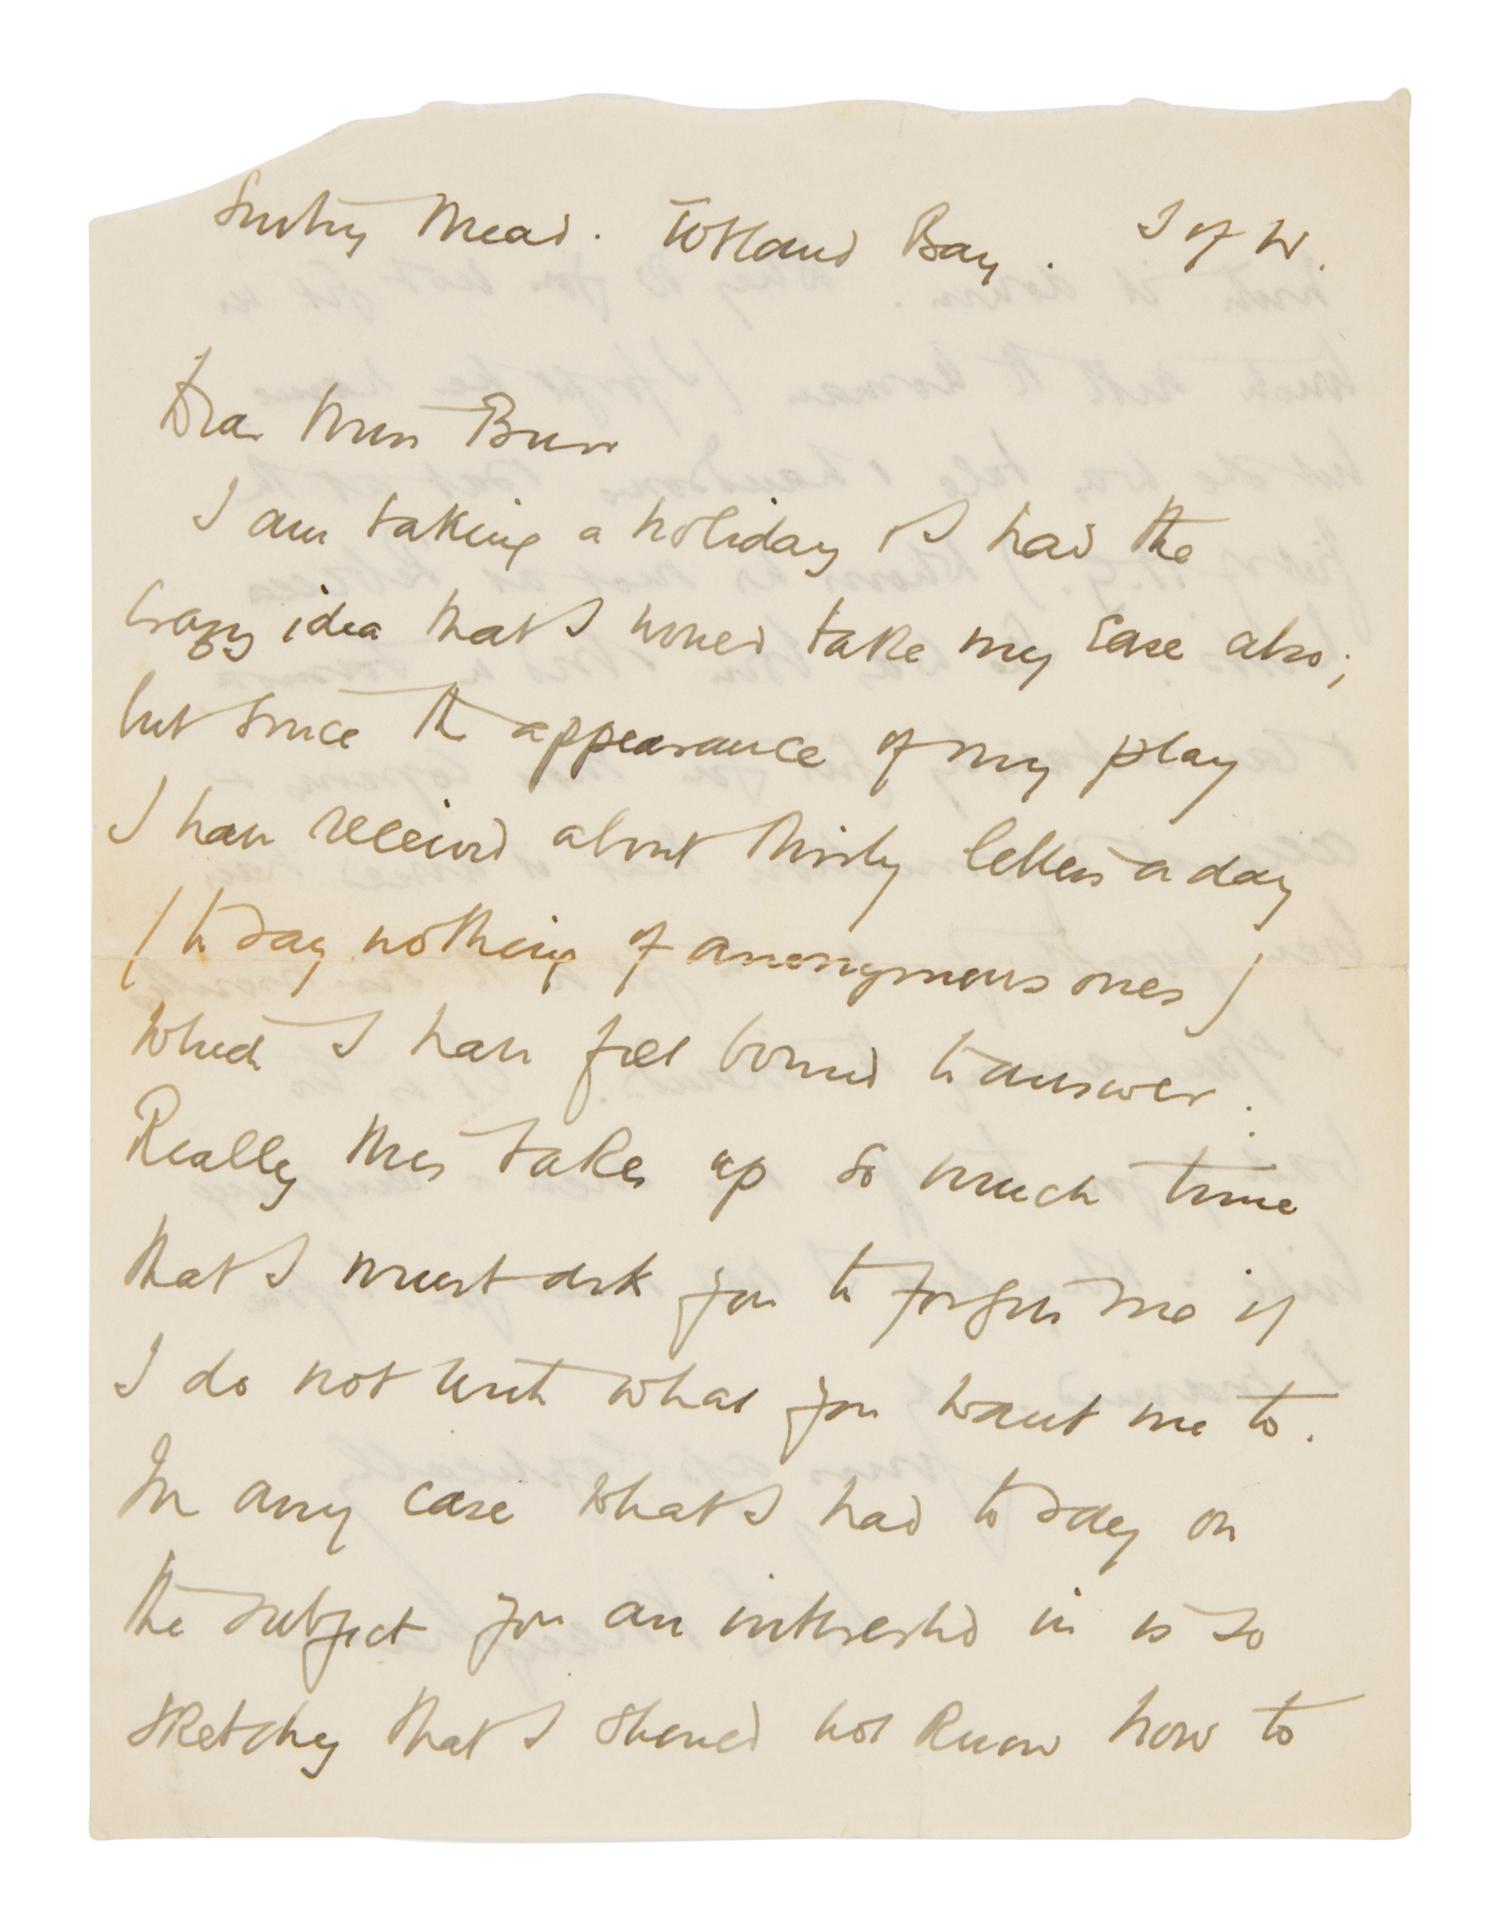 Mead. Totland Bay. I of W.
Dear Miss Burr
I am taking a holiday & I had the
crazy idea that I would take my ease also;
but since the appearance of my play
I have received about thirty letters a day
(to say nothing of anonymous ones)
which I have felt bound to answer.
Really this takes up so much time
that I must ask you to forgive me if
I do not write what you want me to.
In any case what I had to say on
the subject you are interested in is so
sketchy that I should not know how to